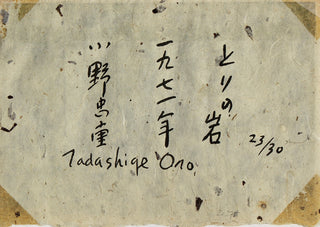 とりの岩
一九七一年
小野忠重
23/30
Tadashige Ono